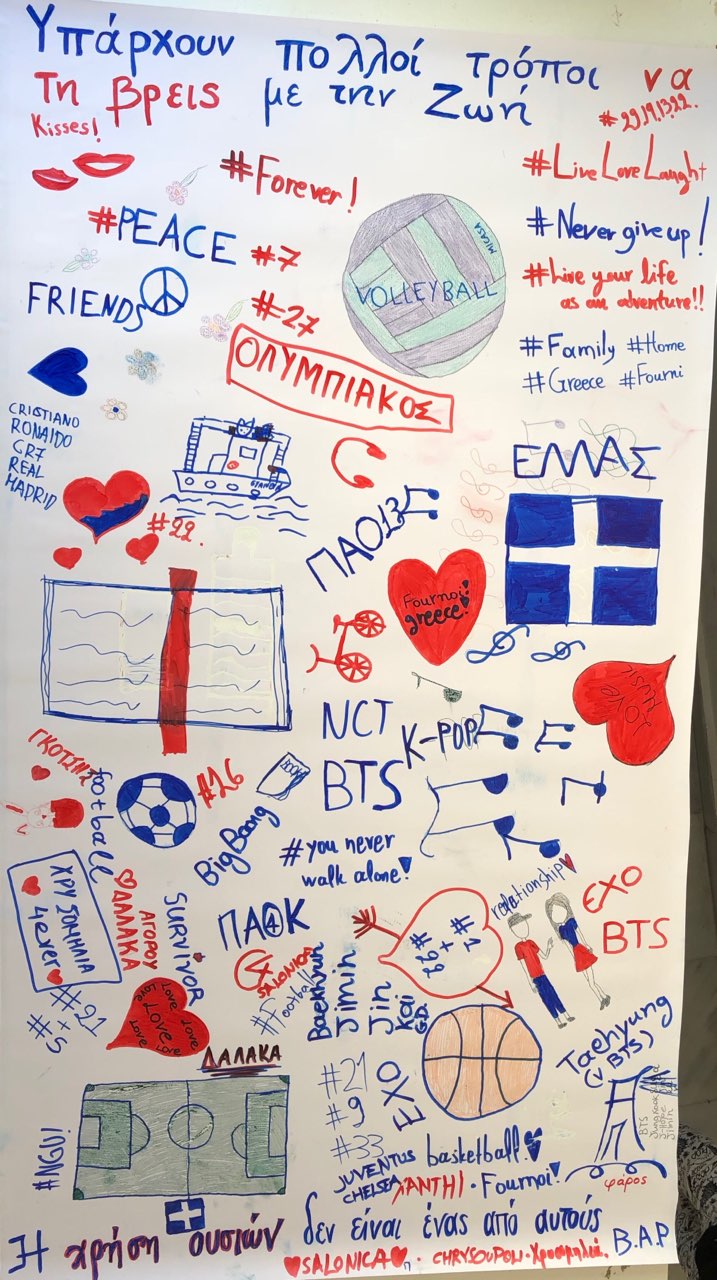 Υπάρχουν πολλοί τρόποι να
τη βρεις με την Ζωή
Kisses!
#29,19,13,22.
#Forever!
#Live Love Laught
#PEACE
#7
#Never give up!
MICASA
VOLLEYBALL
#Live your life
as an adventure!!
FRIENDS
#27
ΟΛΥΜΠΙΑΚΟΣ
#Family #Home
#Greece #Fourni
CRISTIANO
RONALDO
CR7
REAL
MADRID
ΕΛΛΑΣ
#22.
ΠΑΟ13
Fournoi!
greece!
LOVE
MUSIC
NCT
K-POP
BTS
football
#16
BOOK
BigBang
#you never
walk alone!
ΧΡΥΣΟΜΗΛΙΑ
4ever
ΔΑΛΑΚΑ
ΑΓΟΡΟΥ
SURVIVOR
ΠΑΟΚ
4
SALONICA
#Football
#1
+
#22
relationship
EXO
BTS
#21
+5
#
Love
Love
Love
Love
Love
Love
ΔΑΛΑΚΑ
Baekhyun
Jimin
Jin
Kai
G.D.
Taehyung
(V BTS)
#21
#9
#33
EXO
BTS
Jungkook
J-Hope
Jimin
#NGU!
JUVENTUS
CHELSEA
basketball!
XANTHI · Fournoi!
φαρος
Η χρήση ουσιών δεν είναι ένας από αυτούς
SALONICA
CHRYSOUPOLI · Χρυσομηλιά.
B.A.P